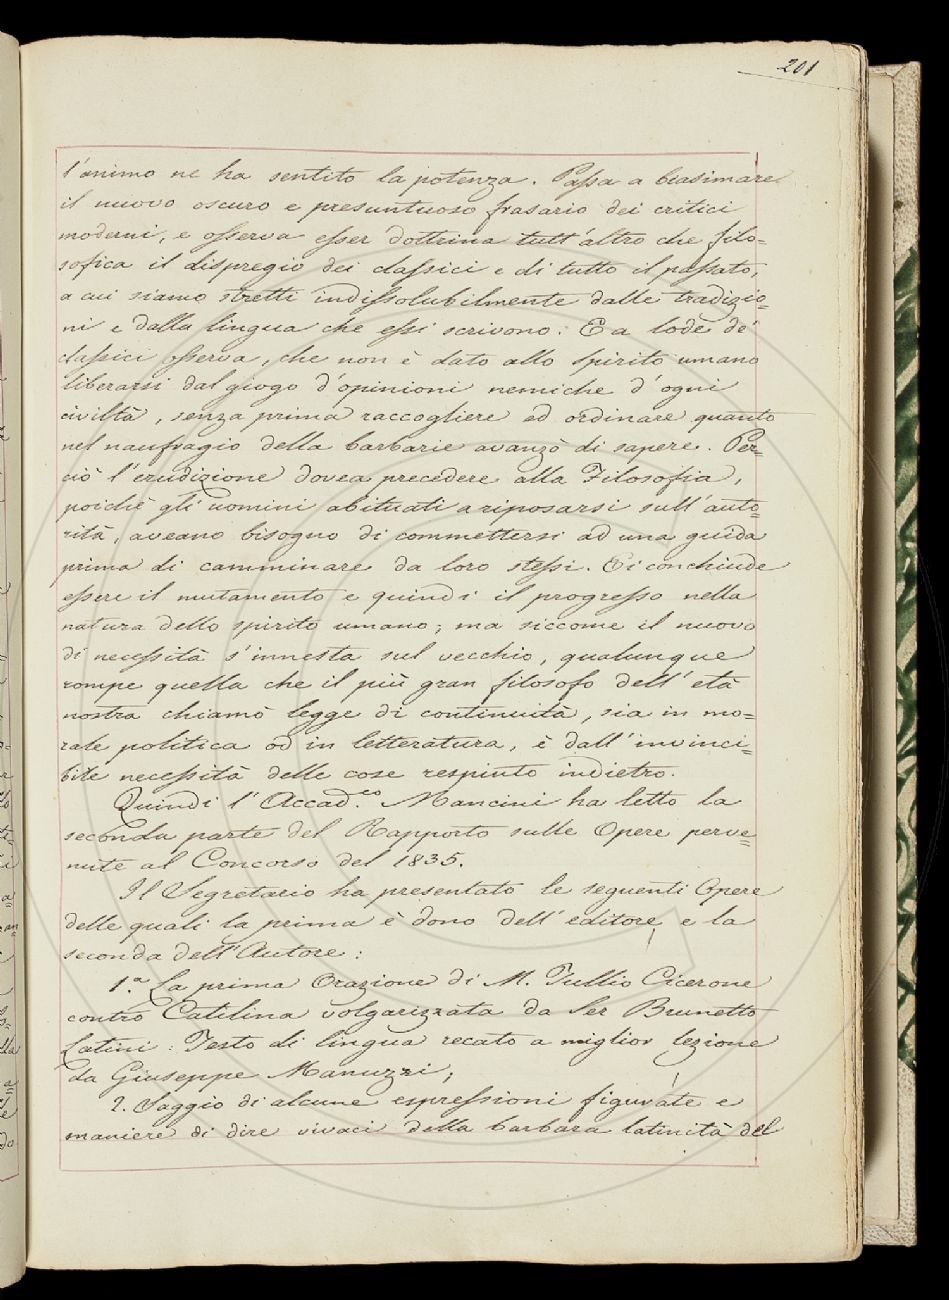 201
l'animo ne ha sentito la potenza. Passa a biasimare
il nuovo oscuro e presuntuoso frasario dei critici
moderni, e osserva esser dottrina tutt'altro che filo=
sofica il dispregio dei classici e di tutto il passato,
a cui siamo stretti indissolubilmente dalle tradizio=
ni e dalla lingua che essi scrivono. E a lode de'
classici osserva, che non è dato allo spirito umano
liberarsi dal giogo d'opinioni nemiche d'ogni
civiltà, senza prima raccogliere ed ordinare quanto
nel naufragio della barbarie avanzò di sapere. Per=
ciò l'erudizione dovea precedere alla Filosofia,
poichè gli uomini abituati a riposarsi sull'auto=
rità, aveano bisogno di commettersi ad una guida
prima di camminare da loro stessi. Ei conchiude
essere il mutamento e quindi il progresso nella
natura dello spirito umano; ma siccome il nuovo
di necessità s'innesta sul vecchio, qualunque
rompe quella che il più gran filosofo dell'età
nostra chiamò legge di continuità, sia in mo=
rale politica od in letteratura, è dall'invinci=
bile necessità delle cose respinto indietro.
Quindi l'Accad.co Mancini ha letto la
seconda parte del Rapporto sulle Opere perve=
nute al Concorso del 1835.
Il Segretario ha presentato le seguenti Opere
delle quali la prima è dono dell'editore, e la
seconda dell'Autore:
1.a La prima Orazione di M. Tullio Cicerone
contro Catilina volgarizzata da Ser Brunetto
Latini: Testo di lingua recato a miglior lezione
da Giuseppe Manuzzi;
2. Saggio di alcune espressioni figurate e
maniere di dire vivaci della barbara latinità del